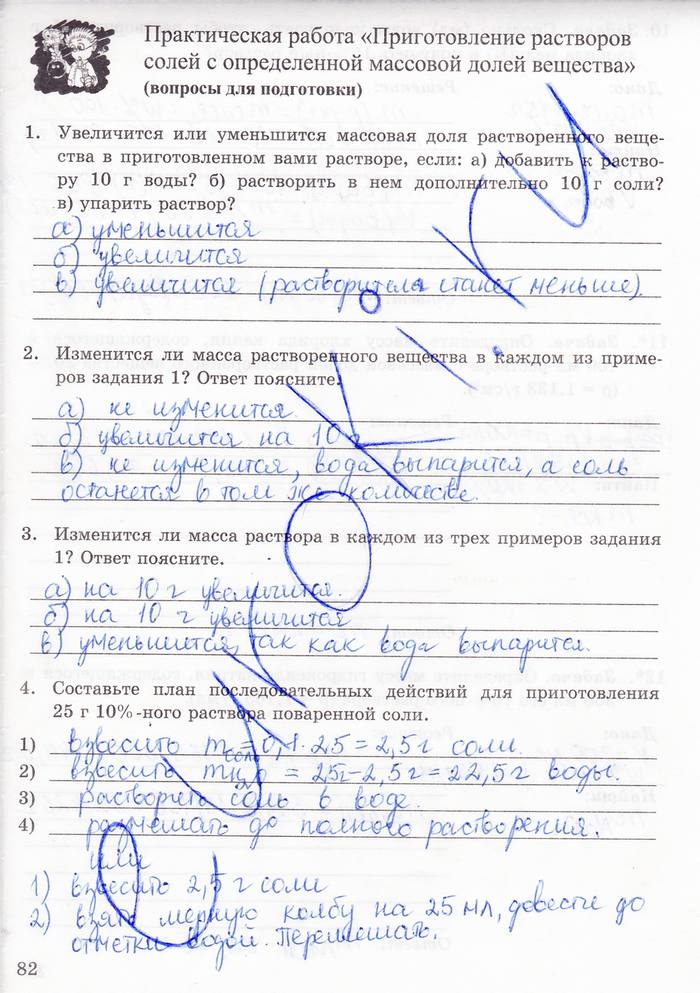 Практическая работа «Приготовление растворов
солей с определенной массовой долей вещества»
(вопросы для подготовки)
1. Увеличится или уменьшится массовая доля растворенного веще-
ства в приготовленном вами растворе, если: а) добавить к раство-
ру 10 г воды? б) растворить в нем дополнительно 10 г соли?
в) упарить раствор?
а) уменьшится
б) увеличится
в) увеличится (растворителя станет меньше).
2. Изменится ли масса растворенного вещества в каждом из приме-
ров задания 1? Ответ поясните.
а) не изменится.
б) увеличится на 10 г
в) не изменится, вода выпарится, а соль
останется в том же количестве.
3. Изменится ли масса раствора в каждом из трех примеров задания
1? Ответ поясните.
а) на 10 г увеличится.
б) на 10 г увеличится
в) уменьшится, так как вода выпарится.
4. Составьте план последовательных действий для приготовления
25 г 10%-ного раствора поваренной соли.
1) взвесить mсоль = 0,1 · 25 = 2,5 г соли.
2) взвесить mH2O = 25г - 2,5г = 22,5г воды.
3) растворить соль в воде.
4) размешать до полного растворения.
или
1) взвесить 2,5 г соли
2) взять мерную колбу на 25 мл, довести до
отметки водой. Перемешать.
82